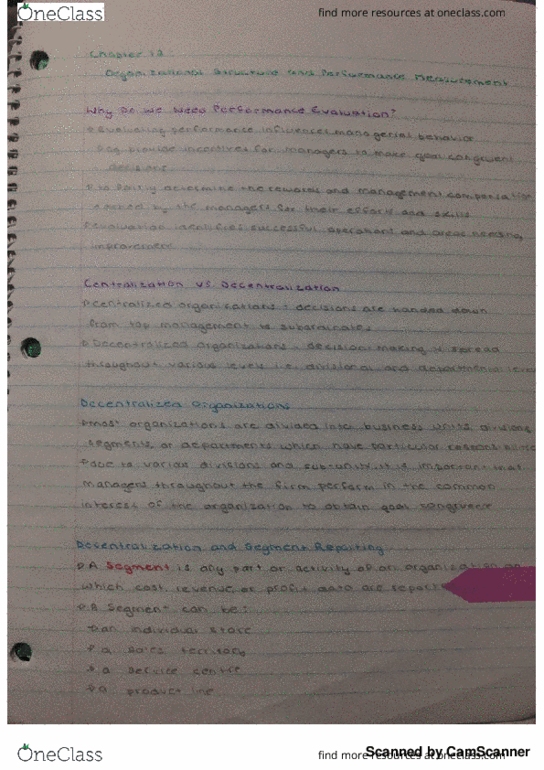 OneClass
find more resources at oneclass.com
Chapter 12
Organizational Structure and Performance Measurement
Why Do we Need Performance Evaluation?
Evaluating performance influences managerial behavior
eg. provide incentives for managers to make goal congruent
decisions
to fairly determine the rewards and management compensation
earned by the managers for their efforts and skills
evaluation identifies successful operations and areas needing
improvement
Centralization vs Decentralization
Centralized organizations : decisions are handed down
from top management to subordinates
Decentralized organizations : decision making is spread
throughout various levels i.e. divisional and departmental level
Decentralized Organizations
most organizations are divided into business units, divisions
segments, or departments which have particular
due to various divisions and subunits, it is important that
managers throughout the firm perform in the common
interest of the organization to obtain goal congruence
Decentralization and Segment Reporting
A Segment is any part or activity of an organization
which cost, revenue, or profit data are
A Segment can be:
an individual store
a sales territory
a service centre
a product line
OneClass
find more resources at oneclass.com
Scanned by CamScanner